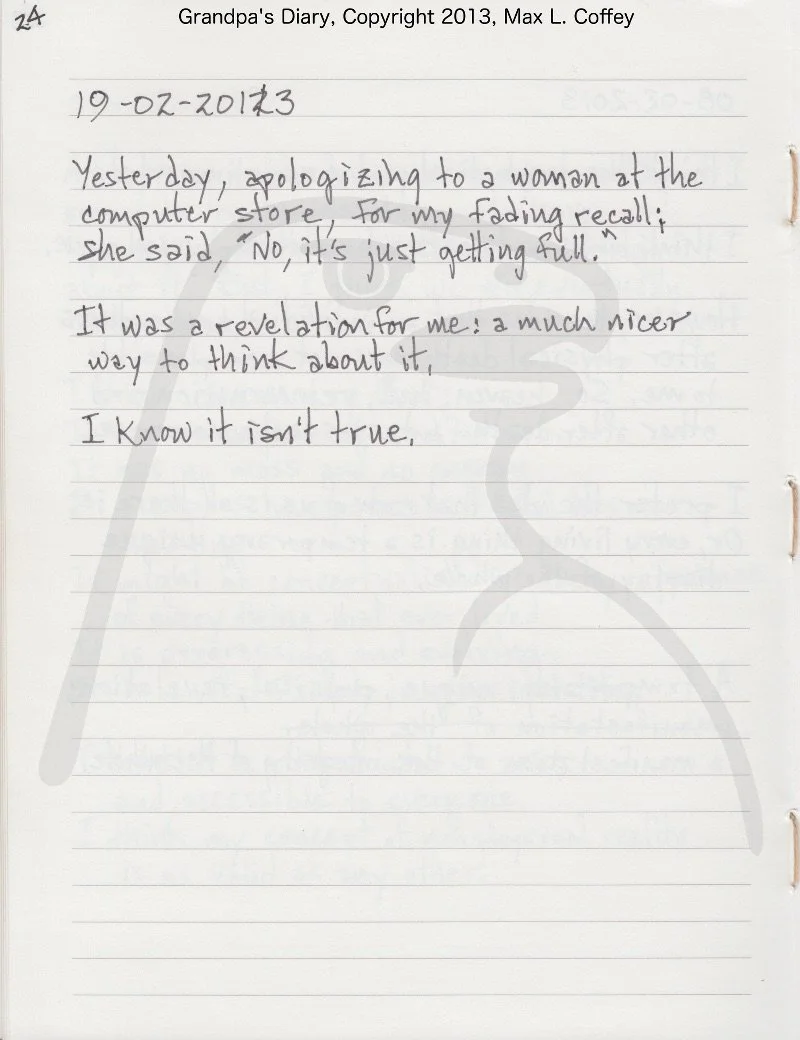 24
Grandpa's Diary, Copyright 2013, Max L. Coffey
19-02-2013
Yesterday, apologizing to a woman at the
computer store, for my fading recall;
she said, "No, it's just getting full."
It was a revelation for me: a much nicer
way to think about it.
I know it isn't true.